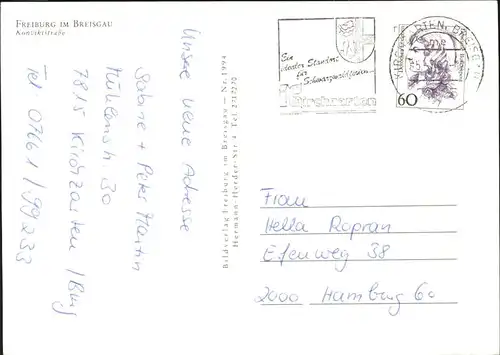 FREIBURG IM BREISGAU
Konviktstraße
Unsere neue Adresse
Sabine + Peter Martin
Mühlenstr. 30
7815 Kirchzarten / Brsg
Tel 07661 / 99233
Bildverlag Freiburg im Breisgau — Nr. 1964
Hermann-Herder-Str. · Tel. 27 32 20
Ein
idealer Standort
für
Schwarzwaldferien
Kirchzarten
60
Frau
Hella
Efenweg 38
2000 Hamburg 60